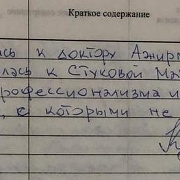 Краткое содержание
лась к доктору Ажирм
лась к Стуковой Ма
рофессионализма и
, с которыми не